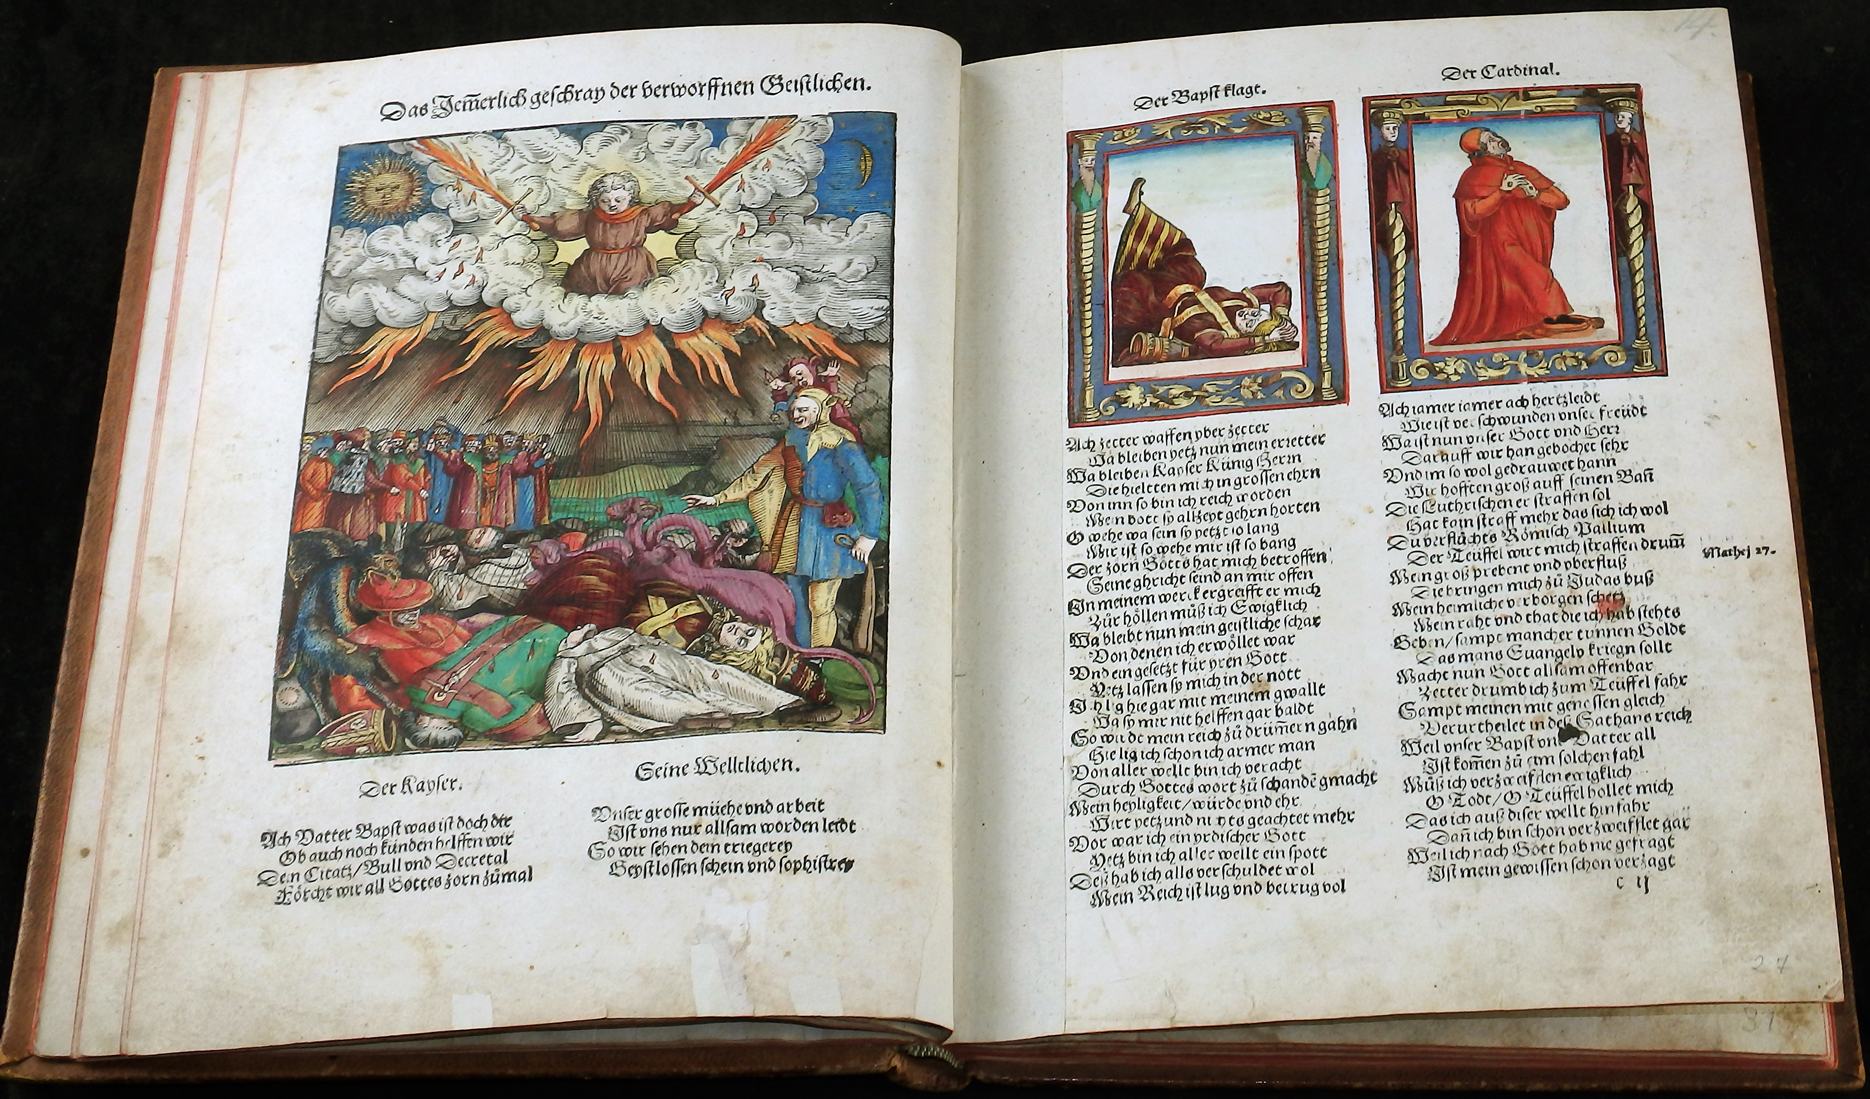 Das Jem̃erlich geschray der verworffnen Geistlichen.
Der Kayser.
Ach Vatter Bapst was ist doch dir
Ob auch noch kunden helffen wir
Dein Citatz/Bull vnd Decretal
Förcht wir all Gottes zorn zůmal
Seine Welltlichen.
Vnser grosse müehe vnd arbeit
Ist vns nur allsam worden leidt
So wir sehen dein triegerey
Geystlossen schein vnd sophistrey
14.
Der Bapst klagt.
Ach zetter waffen vber zetter
Wa bleiben yetz nun mein erretter
Wa bleiben Kayser Künig Herrn
Die hielten mich in grossen ehrn
Von inn so bin ich reich worden
Mein bott sy allzeyt gehrn horten
O wehe wa sein sy yetzt so lang
Mir ist so wehe mir ist so bang
Der zorn Gotts hat mich betroffen
Seine ghricht seind an mir offen
In meinem werck ergreifft er mich
Zur höllen můß ich Ewigklich
Wa bleibt nun mein geistliche schar
Von denen ich erwöllet war
Vnd eingesetzt für yren Gott
Yetz lassen sy mich in der nott
Ich lig hie gar mit meinem gwallt
Wa sy mir nit helffen gar baldt
So wirdt mein reich zů drüm̃ern gahn
Hie lig ich schon ich armer man
Von aller wellt bin ich veracht
Durch Gottes wort zů schandẽ gmacht
Mein heyligkeit/würde vnd ehr
Wirt yetzund nichts geachtet mehr
Vor war ich ein yrdischer Gott
Yetz bin ich aller wellt ein spott
Deß hab ich alls verschuldet wol
Mein Reich ist lug vnd betrug vol
Der Cardinal.
Ach iamer iamer ach hertzleidt
Wie ist verschwunden vnser freüdt
Wa ist nun vnser Gott vnd Herr
Darauff wir han gebochet sehr
Vnd im so wol gedrauwet hann
Wir hofften groß auff seinen Bañ
Die Luthrischen er straffen sol
Hat kain straff mehr das sich ich wol
Du verflůchts Römisch Pallium
Der Teüffel wirt mich straffen drum̃
Mein groß prebent vnd vberfluß
Die bringen mich zů Judas buß
Mein heimliche verborgen schetz
Mein raht vnd that die ich hab stehts
Geben/sampt mancher tunnen Goldt
Das mans Euangely kriegn sollt
Mache nun Gott allsam offenbar
Zetter drumb ich zum Teüffel fahr
Sampt meinen mit genossen gleich
Verurtheilet in deß Sathans reich
Weil vnser Bapst vnd Vatter all
Ist kom̃en zů eim solchen fahl
Můß ich verzweifflen ewigklich
O Todt/O Teüffel hollet mich
Das ich auß diser wellt hinfahr
Dañ ich bin schon verzweifflet gar
Weil ich nach Gott hab nie gefragt
Ist mein gewissen schon verzagt
Mathej 27.
C ij
27
31